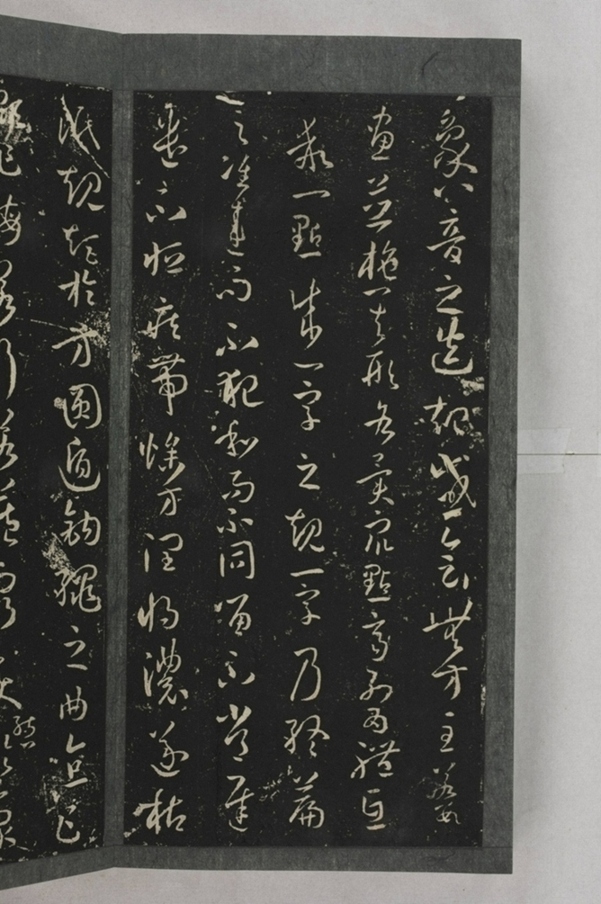 象八音之迭起感會無方至若數
畫並施其形各異衆點齊列為體互
乖一點成一字之規一字乃終篇
之准違而不犯和而不同留不常遲
遣不恒疾帶燥方潤將濃遂枯
泯規矩於方圓遁鉤繩之曲直乍
顯乍晦若行若藏窮